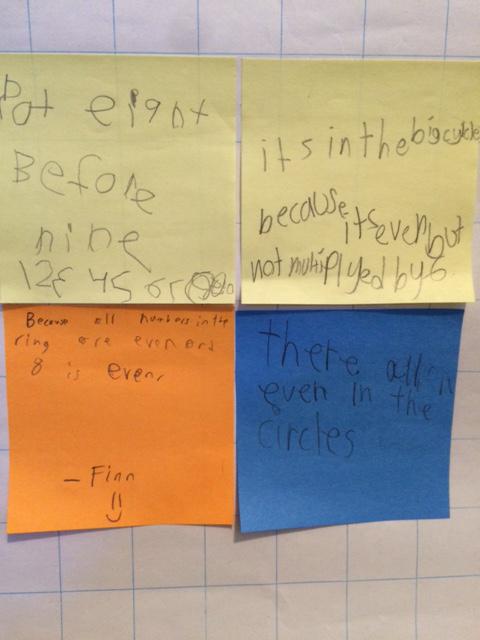 Pot eight
Before
nine
its in the big cyrcle
because its even but
not multiplyed by 6
Because all numbers in the
ring are even and
8 is even,
- Finn
there all
even in the
circles